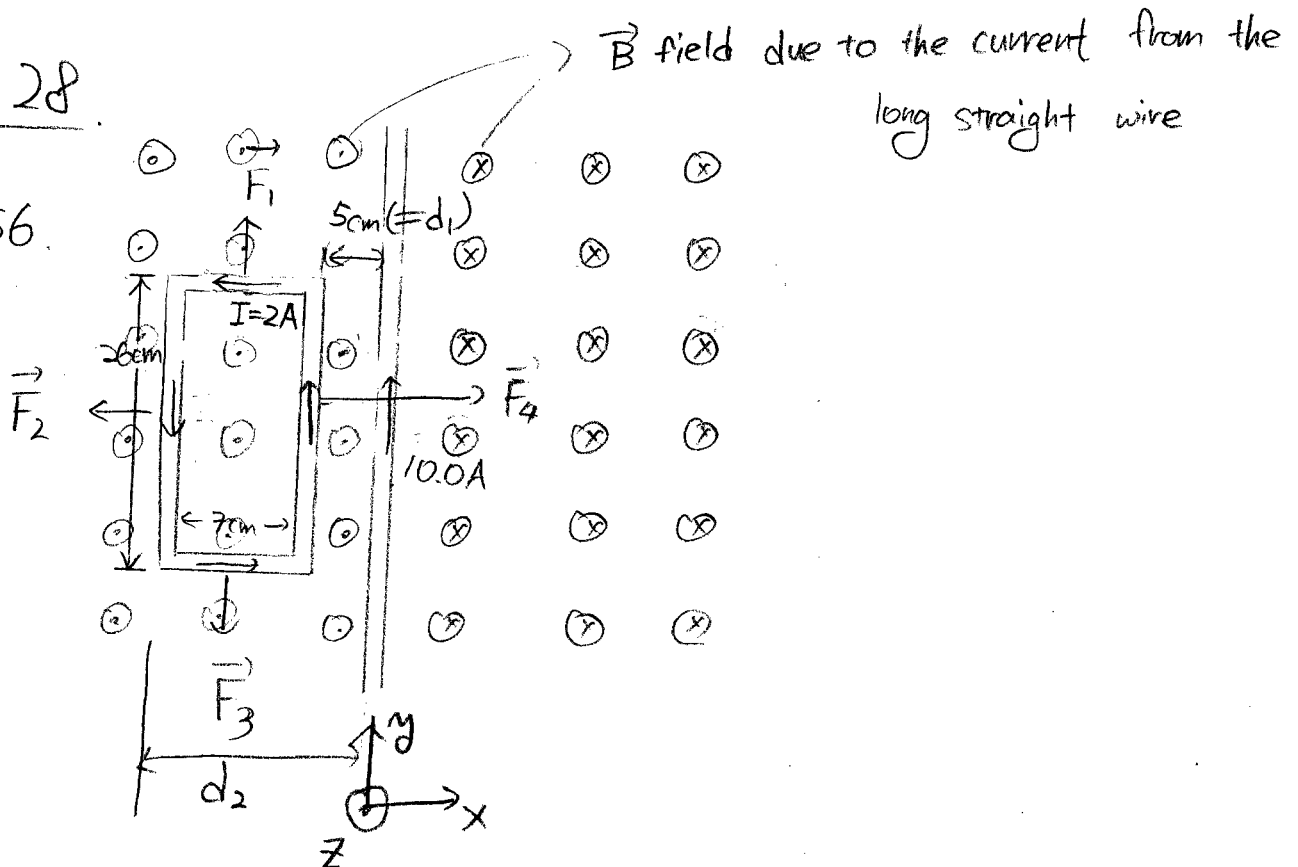 B field due to the current from the
long straight wire
28.
56.
F1
5cm(=d1)
I=2A
26cm
F2
F4
10.0A
7cm
F3
d2
y
x
z